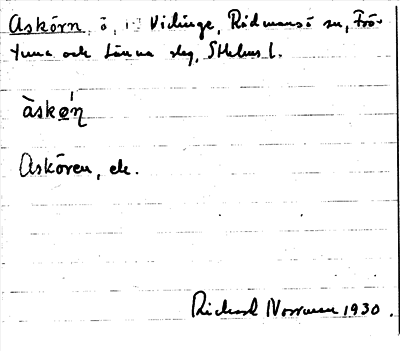 Askörn, ö, i Vidinge, Rådmansö sn, Frö-
tuna och Länna slg, Sthlms l.
àskǿn̥
Askören, ek.
Richard Norrman 1930.